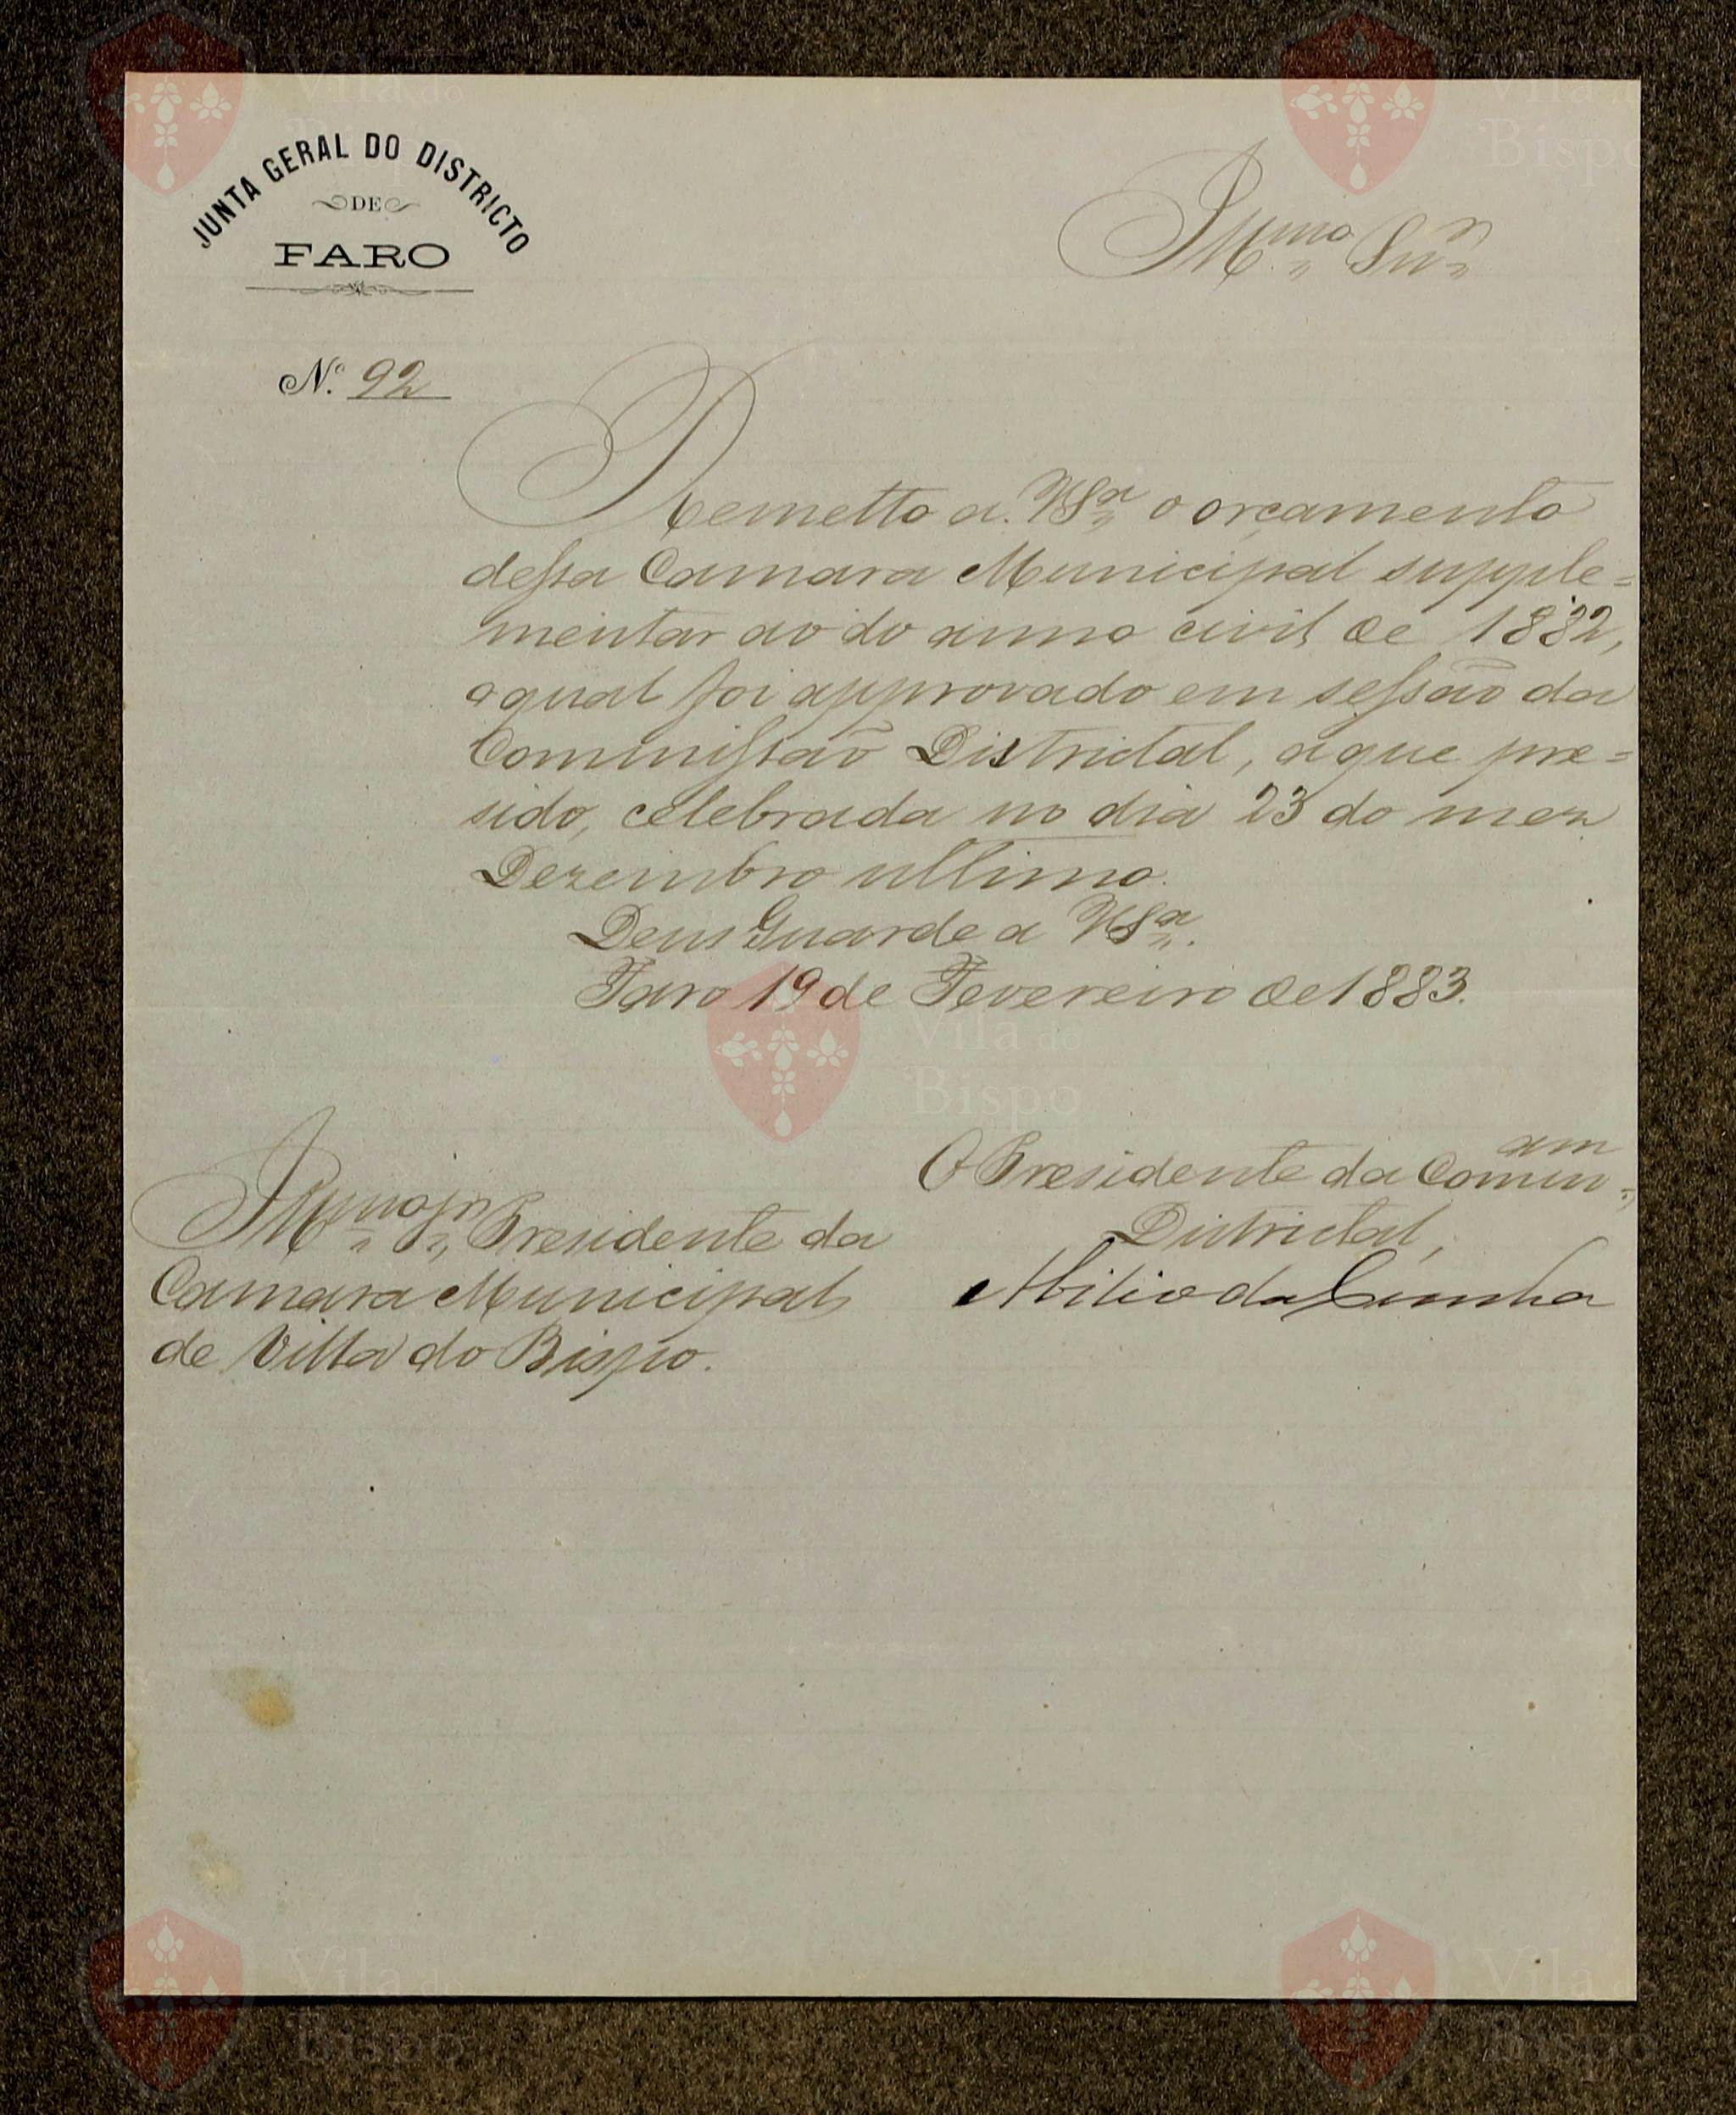 JUNTA GERAL DO DISTRICTO
DE
FARO
Illmo Snr
N.º 92
Remetto a V Sª o orçamento
dessa Camara Municipal supple=
mentar ao do anno civil de 1882,
o qual foi approvado em sessão da
Commissão Districtal, a que pre=
sido, celebrada no dia 23 do mez
Dezembro ultimo.
Deus Guarde a V Sª.
Faro 19 de Fevereiro de 1883.
O Presidente da Comm
Districtal,
Abilio da Cunha
Illmo Sr Presidente da
Camara Municipal
de Villa do Bispo.
Vila do
Bispo